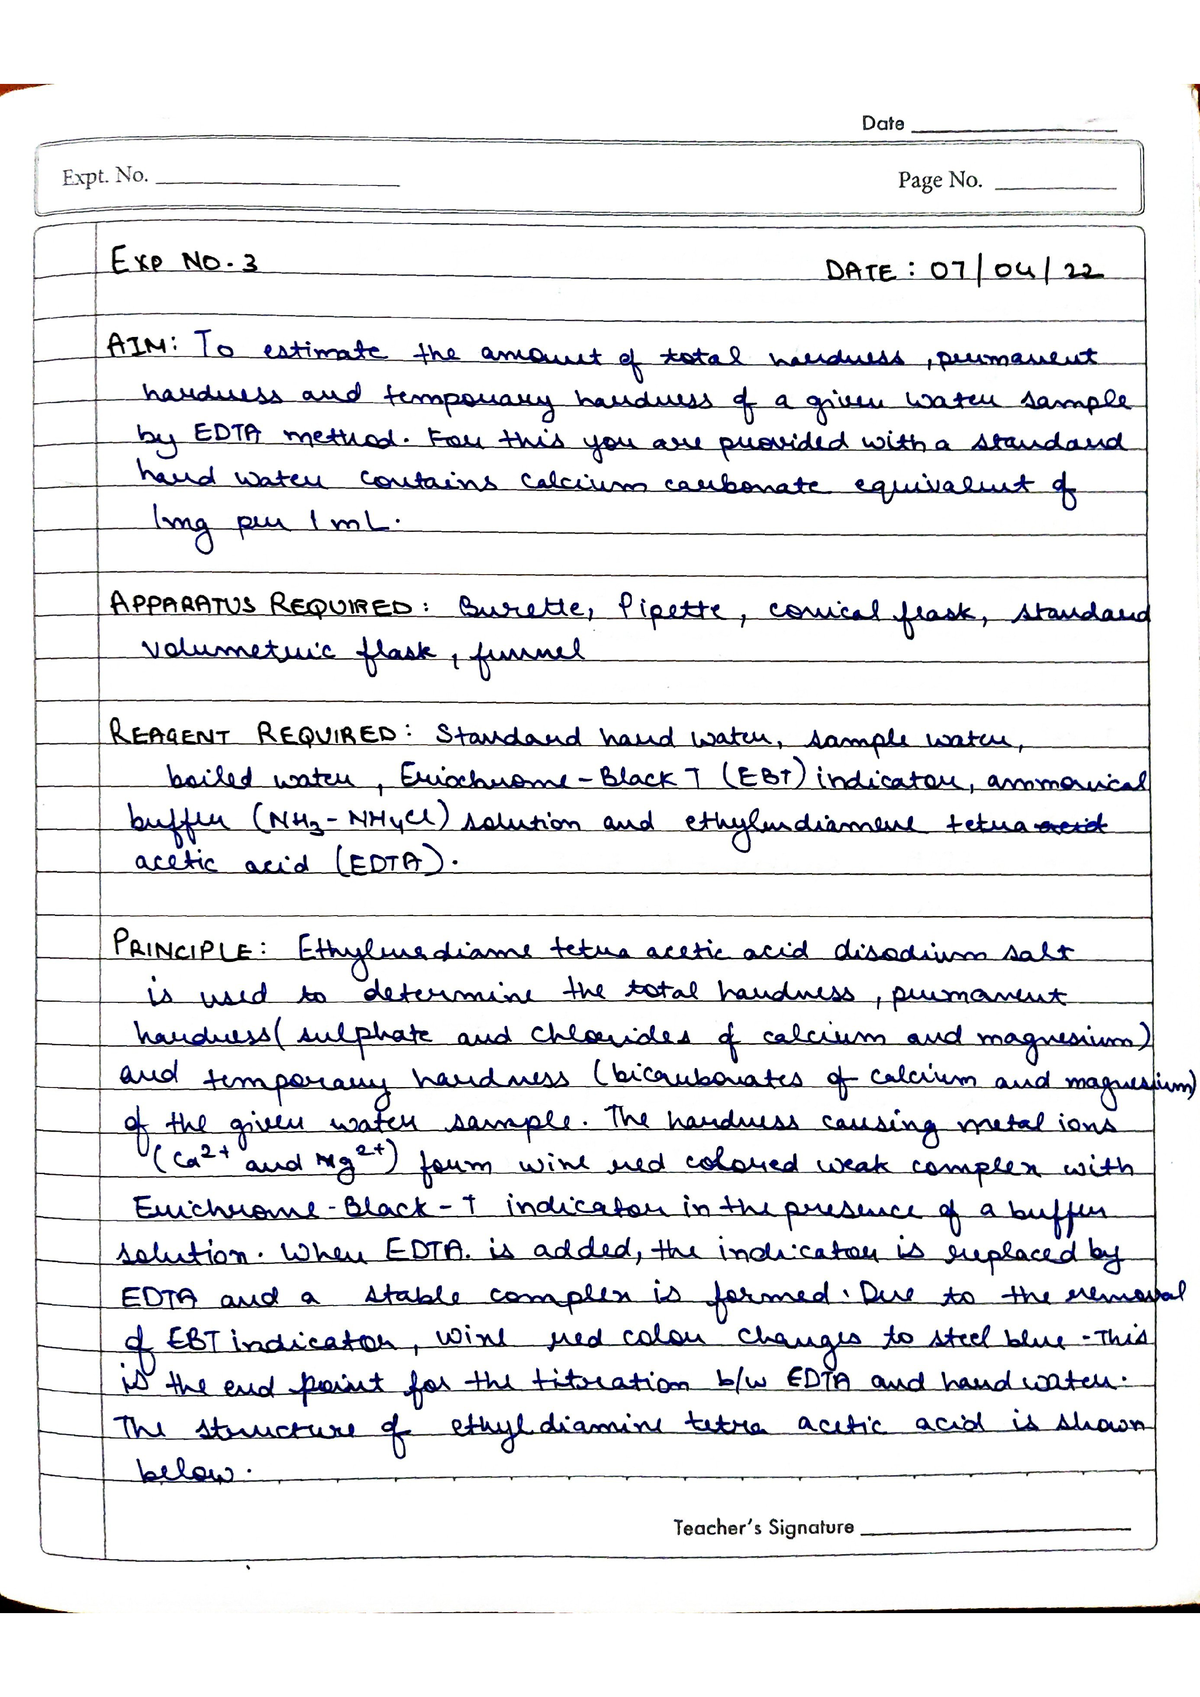 Date
Expt. No.
Page No.
EXP NO. 3
DATE : 07/04/22
AIM: To estimate the amount of total hardness, permanent
hardness and temporary hardness of a given water sample
by EDTA method. For this you are provided with a standard
hard water contains calcium carbonate equivalent of
1mg per 1 mL.
APPARATUS REQUIRED: Burette, Pipette, conical flask, standard
volumetric flask, funnel
REAGENT REQUIRED: Standard hard water, sample water,
boiled water, Eriochrome-Black T (EBT) indicator, ammonical
buffer (NH3-NH4Cl) solution and ethylendiamene tetra acid
acetic acid (EDTA).
PRINCIPLE: Ethylenediame tetra acetic acid disodium salt
is used to determine the total hardness, permanent
hardness (sulphate and chlorides of calcium and magnesium)
and temporary hardness (bicarbonates of calcium and magnesium)
of the given water sample. The hardness causing metal ions
(Ca2+ and Mg2+) form wine red colored weak complex with
Erichrome-Black-T indicator in the presence of a buffer
solution. When EDTA. is added, the indicator is replaced by
EDTA and a stable complex is formed. Due to the removal
of EBT indicator, wine red colour changes to steel blue. This
is the end point for the titration b/w EDTA and hard water.
The structure of ethyldiamine tetra acetic acid is shown
below.
Teacher's Signature